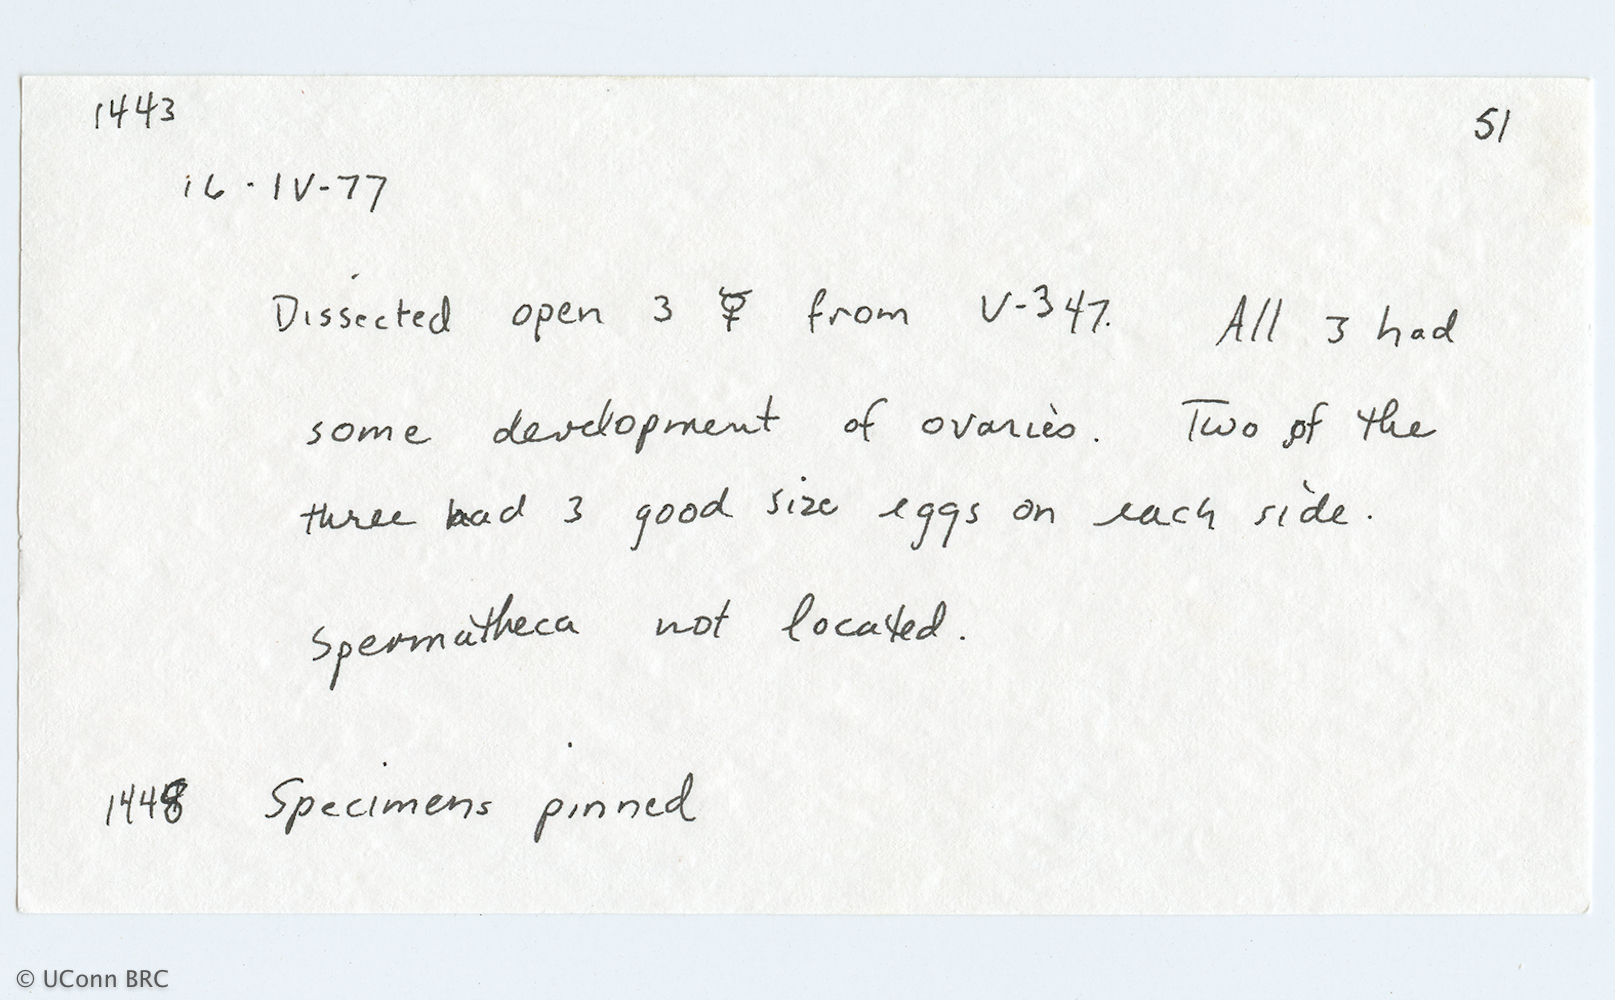 1443
51
16-IV-77
Dissected open 3 ☿ from V-347. All 3 had
some development of ovaries. Two of the
three had 3 good size eggs on each side.
Spermatheca not located.
1448 Specimens pinned
© UConn BRC